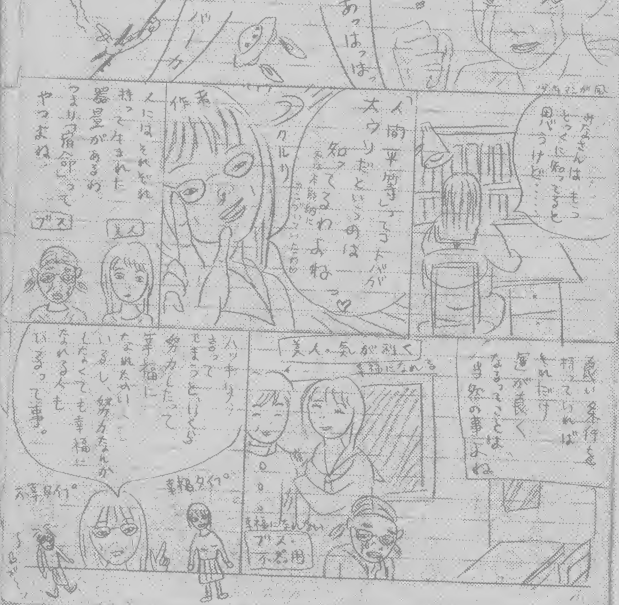 あっはっはっ
バーカ
みなさんはもう
とっくに知ってると
思うけど……
「人間平等」ってコトバが
大ウソだというのは
知ってるわよねーっ♡
クルリ
作者
人にはそれぞれ
持って生まれた
器量があるわ
つまり宿命って
やつよね。
美人
ブス
良い条件を
持っていれば
それだけ
運が良く
なるってことは
当然の事よね
美人。気が利く
幸福になれる
幸福になれない
ブス
不器用
ハッキリ
言って
しまうといくら
努力したって
幸福に
なれない人も
いるし、努力なんか
しなくても幸福に
なれる人も
いるって事。
幸福タイプ
不幸タイプ